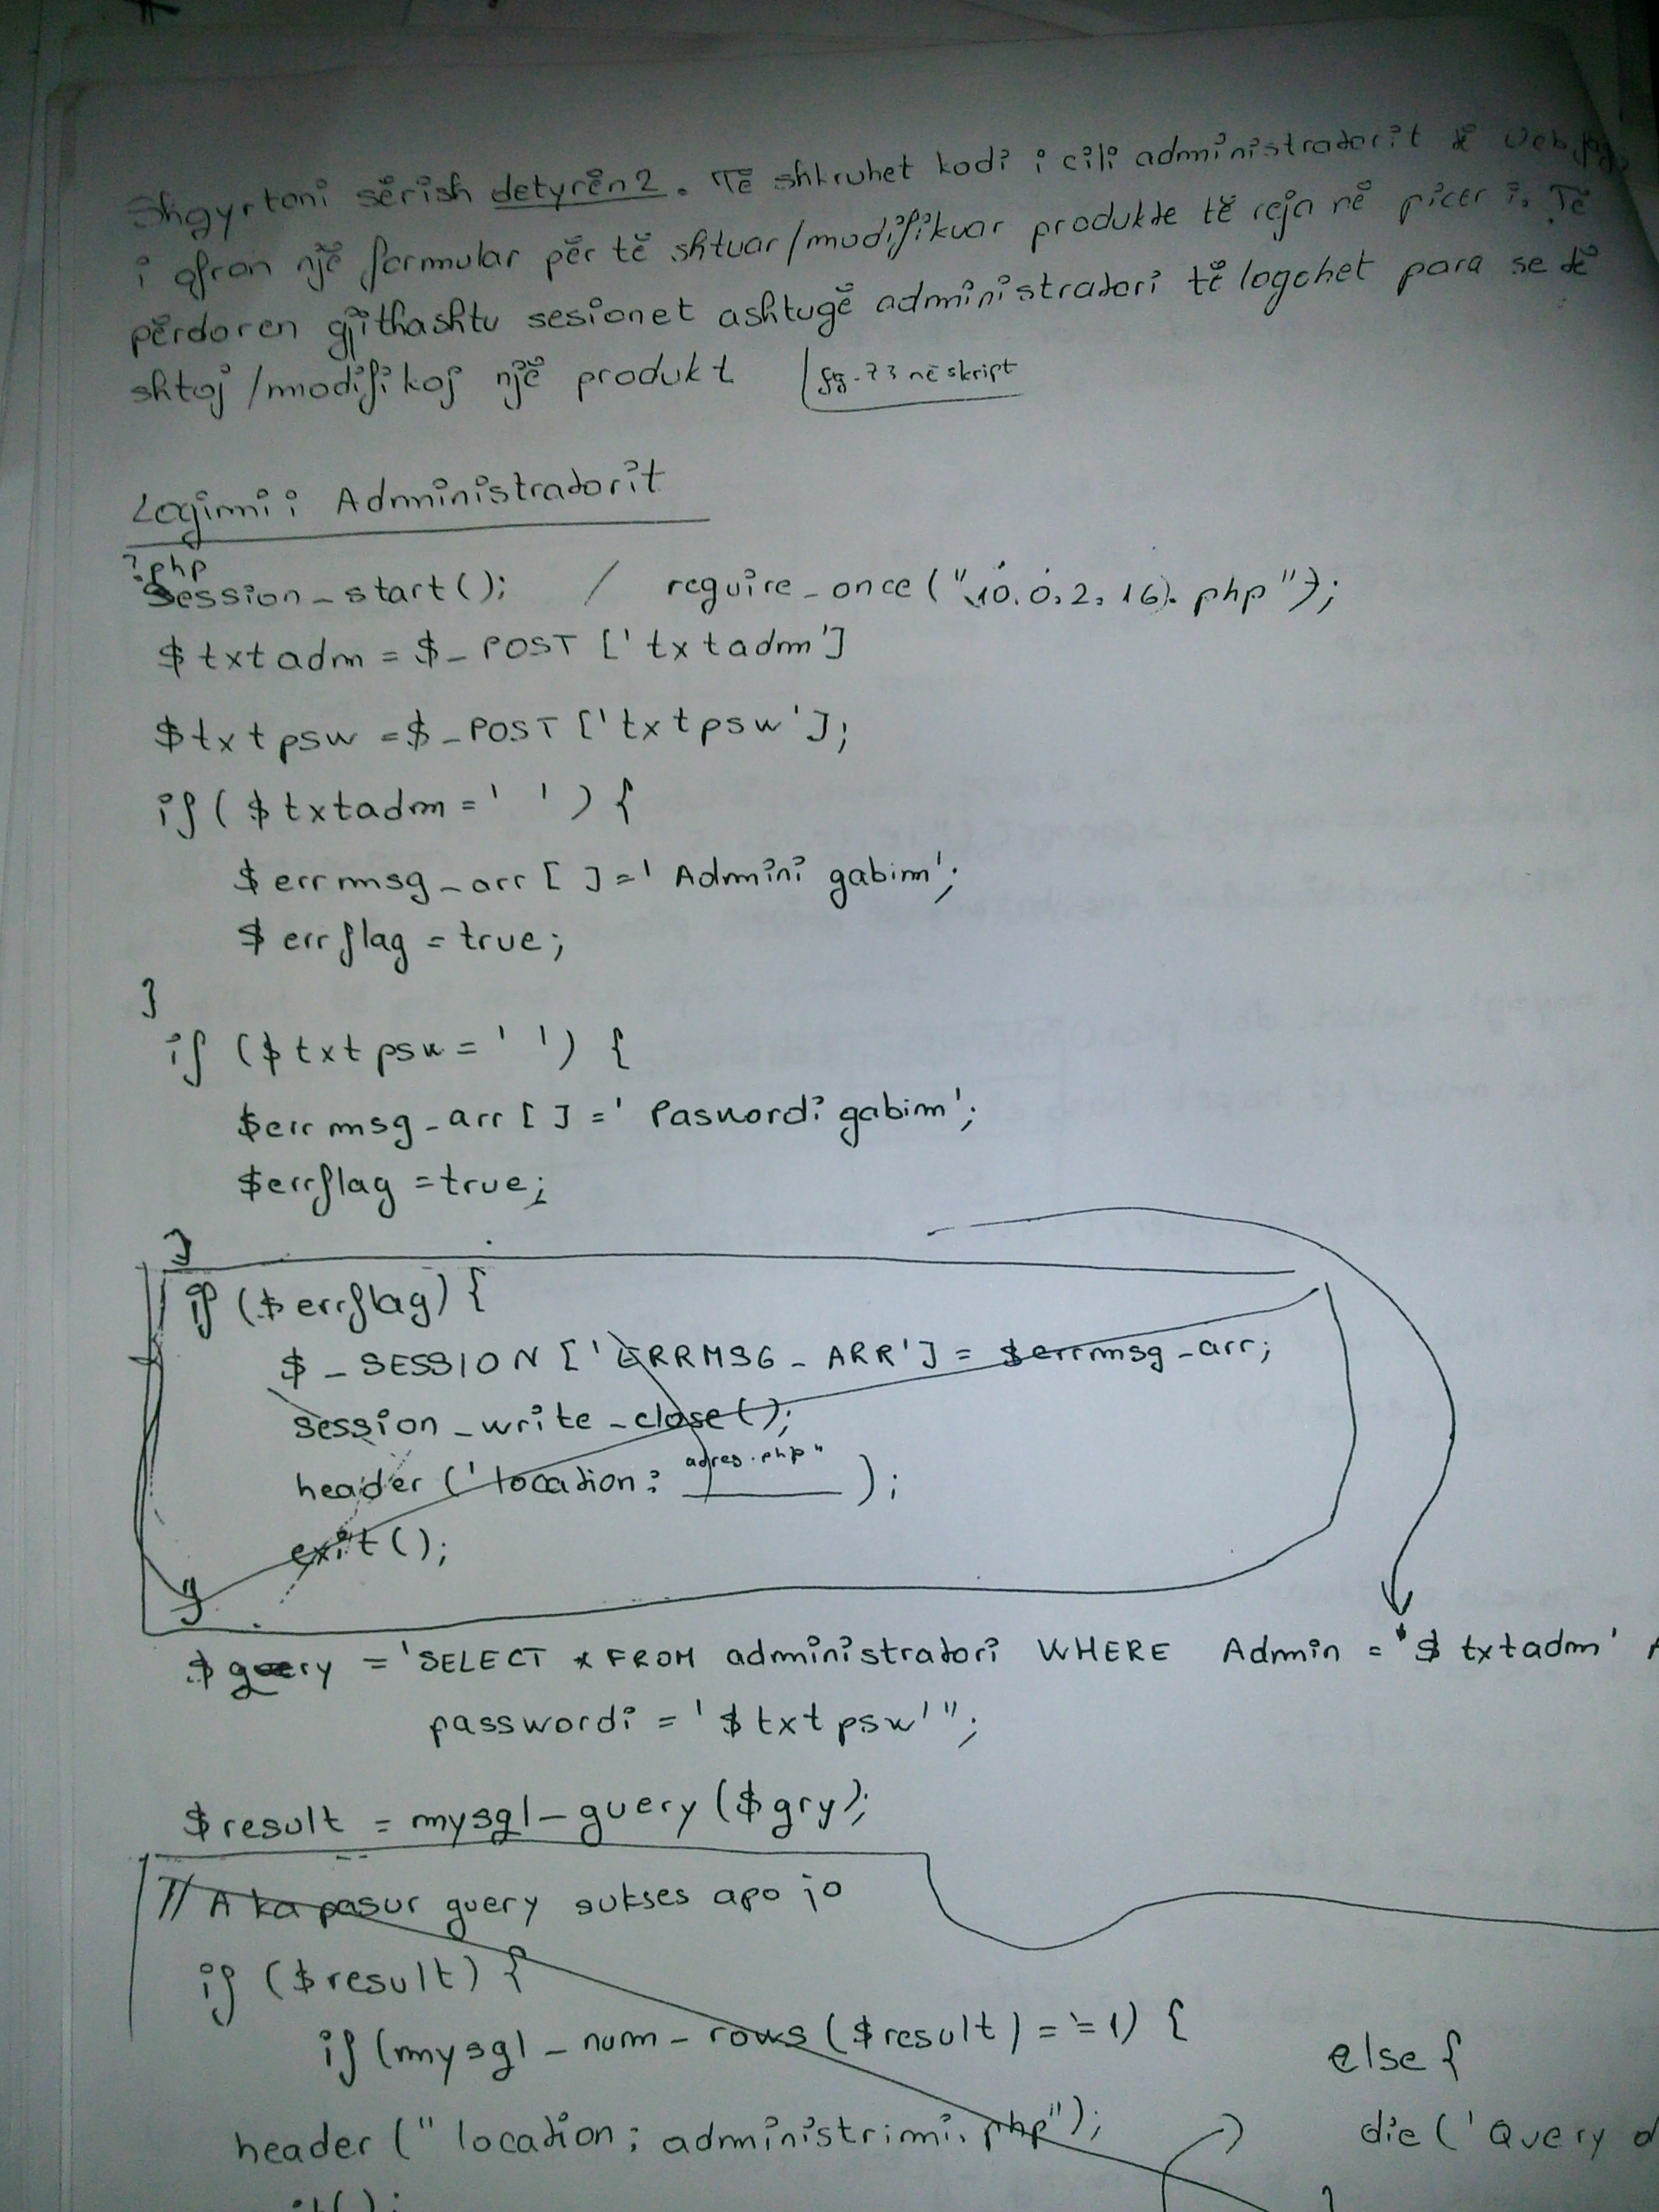 Shqyrtoni sërish detyrën 2. Të shkruhet kodi i cili administratorit të
i ofron një formular për të shtuar/modifikuar produkte të reja në piceri. Të
përdoren gjithashtu sesionet ashtuqë administratori të logohet para se të
shtoj/modifikoj një produkt fq. 73 në skript
Logimi i Administratorit
?php
Session_start(); / require_once("10.0.2.16).php");
$txtadm = $_POST['txtadm']
$txtpsw = $_POST['txtpsw'];
if($txtadm=' '){
$errmsg_arr[ ]='Admini gabim';
$errflag = true;
}
if ($txtpsw=' '){
$errmsg_arr[ ]='Paswordi gabim';
$errflag = true;
}
if ($errflag){
$_SESSION['ERRMSG_ARR'] = $errmsg_arr;
session_write_close();
header('location: adres.php" );
exit();
}
$query = 'SELECT * FROM administratori WHERE Admin = '$txtadm'
passwordi = '$txtpsw'";
$result = mysql_query($qry);
// A ka pasur query sukses apo jo
if ($result){
if (mysql_num_rows($result)==1){
else{
header("location: administrimi.php");
die('Query